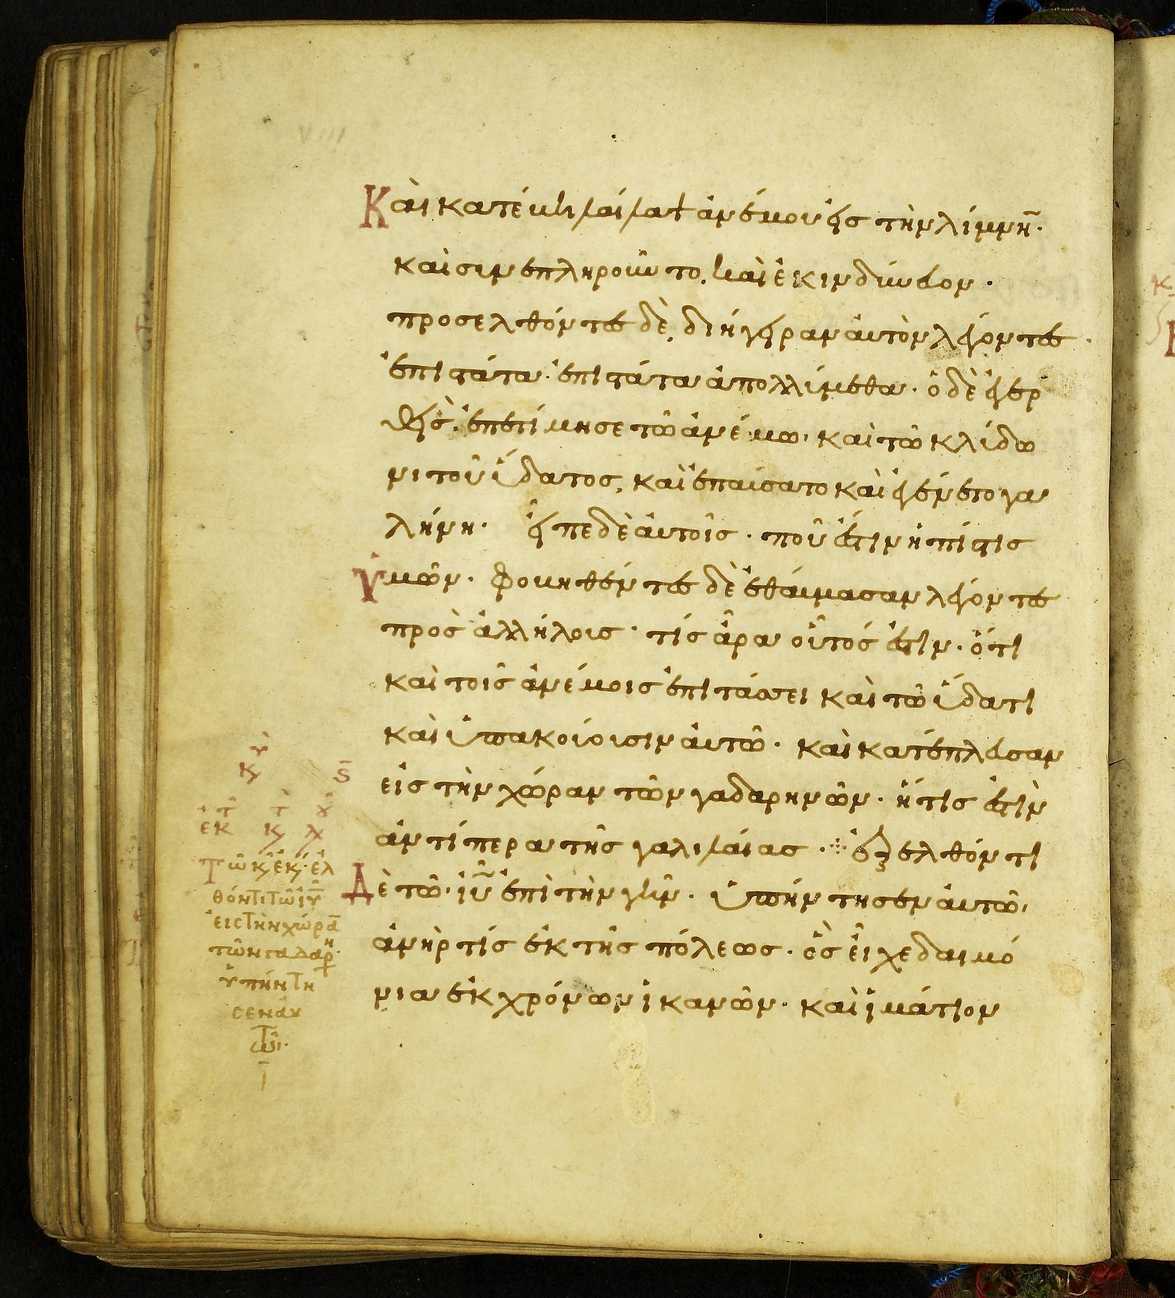 Καὶ κατέβη λαίλαψ ἀνέμου εἰς τὴν λίμνη̅·
καὶ συνεπληροῦντο, καὶ ἐκινδύνευον·
προσελθόντες δὲ, διήγειραν αὐτὸν λέγοντες·
ἐπιστάτα· ἐπιστάτα ἀπολλύμεθα· ὁ δὲ ἐγερ
θεὶς· ἐπετίμησε τῶ ἀνέμω, καὶ τῶ κλύδω
νι τοῦ ὕδατος, καὶ ἐπαύσατο καὶ ἐγένετο γα
λήνη· εἶπε δὲ αὐτοῖς· ποῦ ἐστιν ἡ πίστις
ὑμῶν· φοβηθέντες δὲ ἐθαύμασαν λέγοντες
πρὸς ἀλλήλους· τίς ἄρα οὗτός ἐστιν· ὅτι
καὶ τοῖς ἀνέμοις ἐπιτάσσει καὶ τῶ ὕδατι
καὶ ὑπακούουσιν αὐτῶ· καὶ κατέπλευσαν
εἰς τὴν χώραν τῶν γαδαρηνῶν· ἥτις ἐστὶν
ἀντίπερα τῆς γαλιλαίας· ἐξελθόντι
Δὲ τῶ ι̅υ̅ ἐπὶ τὴν γῆν· ὑπήντησεν αὐτῶ,
ἀνὴρ τίς ἐκ τῆς πόλεως· ὃς εἶχε δαιμό
νια ἐκ χρόνων ἱκανῶν· καὶ ἱμάτιον
Τῶ κ ἐκ ἐλ
θόντι τῶ ι̅υ̅
εἰς τὴν χώρα̅
τῶν γαδαρη
ὑπήντη
σεν αυ
τῶι·